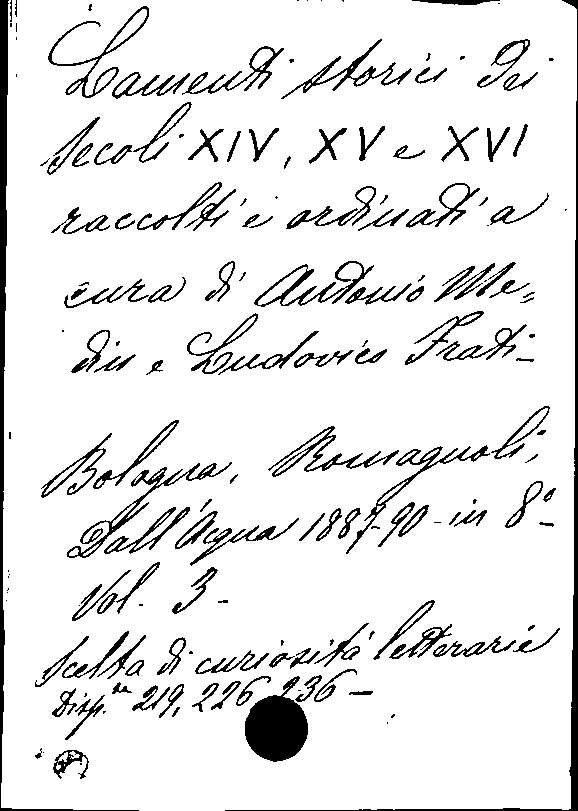 Lamenti storici dei
Secoli XIV, XV e XVI
raccolti e ordinati a
cura di Antonio Me=
din e Ludovico Frati-
Bologna, Romagnoli,
Dall'Acqua 1887-90 - in 8°-
Vol. 3 -
Scelta di curiosità letterarie
Disp.ᵉ 219, 226, 236 -